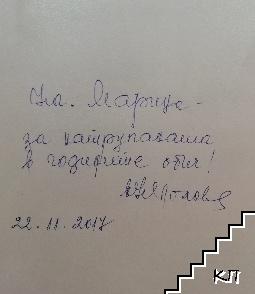 На Марица -
за натрупаната
в годините обич!
22.11.2017
КП